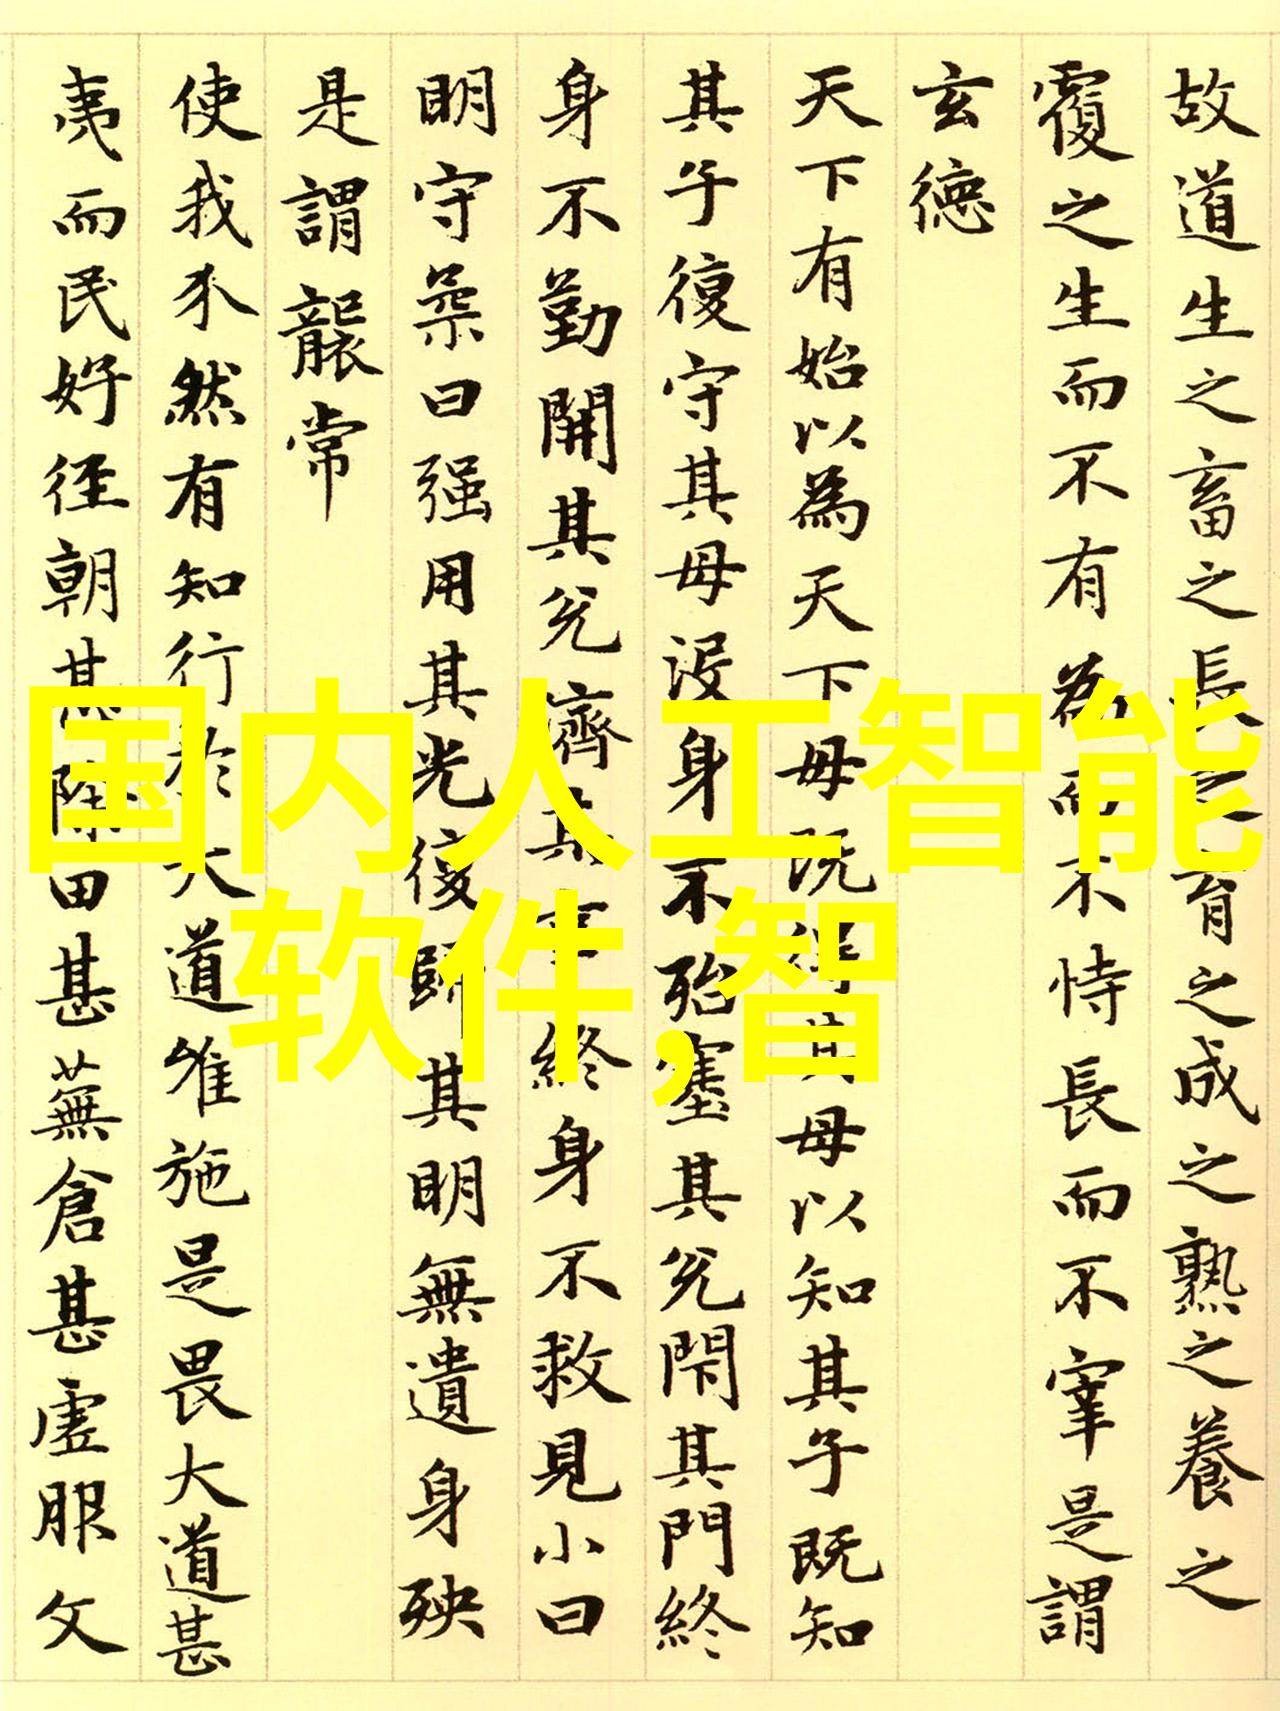 故道生之畜之長之育之成之熟之養之
覆之生而不有為而不恃長而不宰是謂
玄德
天下有始以為天下母既得其母以知其子既知
其子復守其母沒身不殆塞其兌閇其門終
身不勤開其兌濟其事終身不救見小曰
明守柔曰强用其光復歸其明無遺身殃
是謂襲常
使我介然有知行於大道唯施是畏大道甚
夷而民好徑朝甚除田甚蕪倉甚虛服文
国内人工智能
软件,智